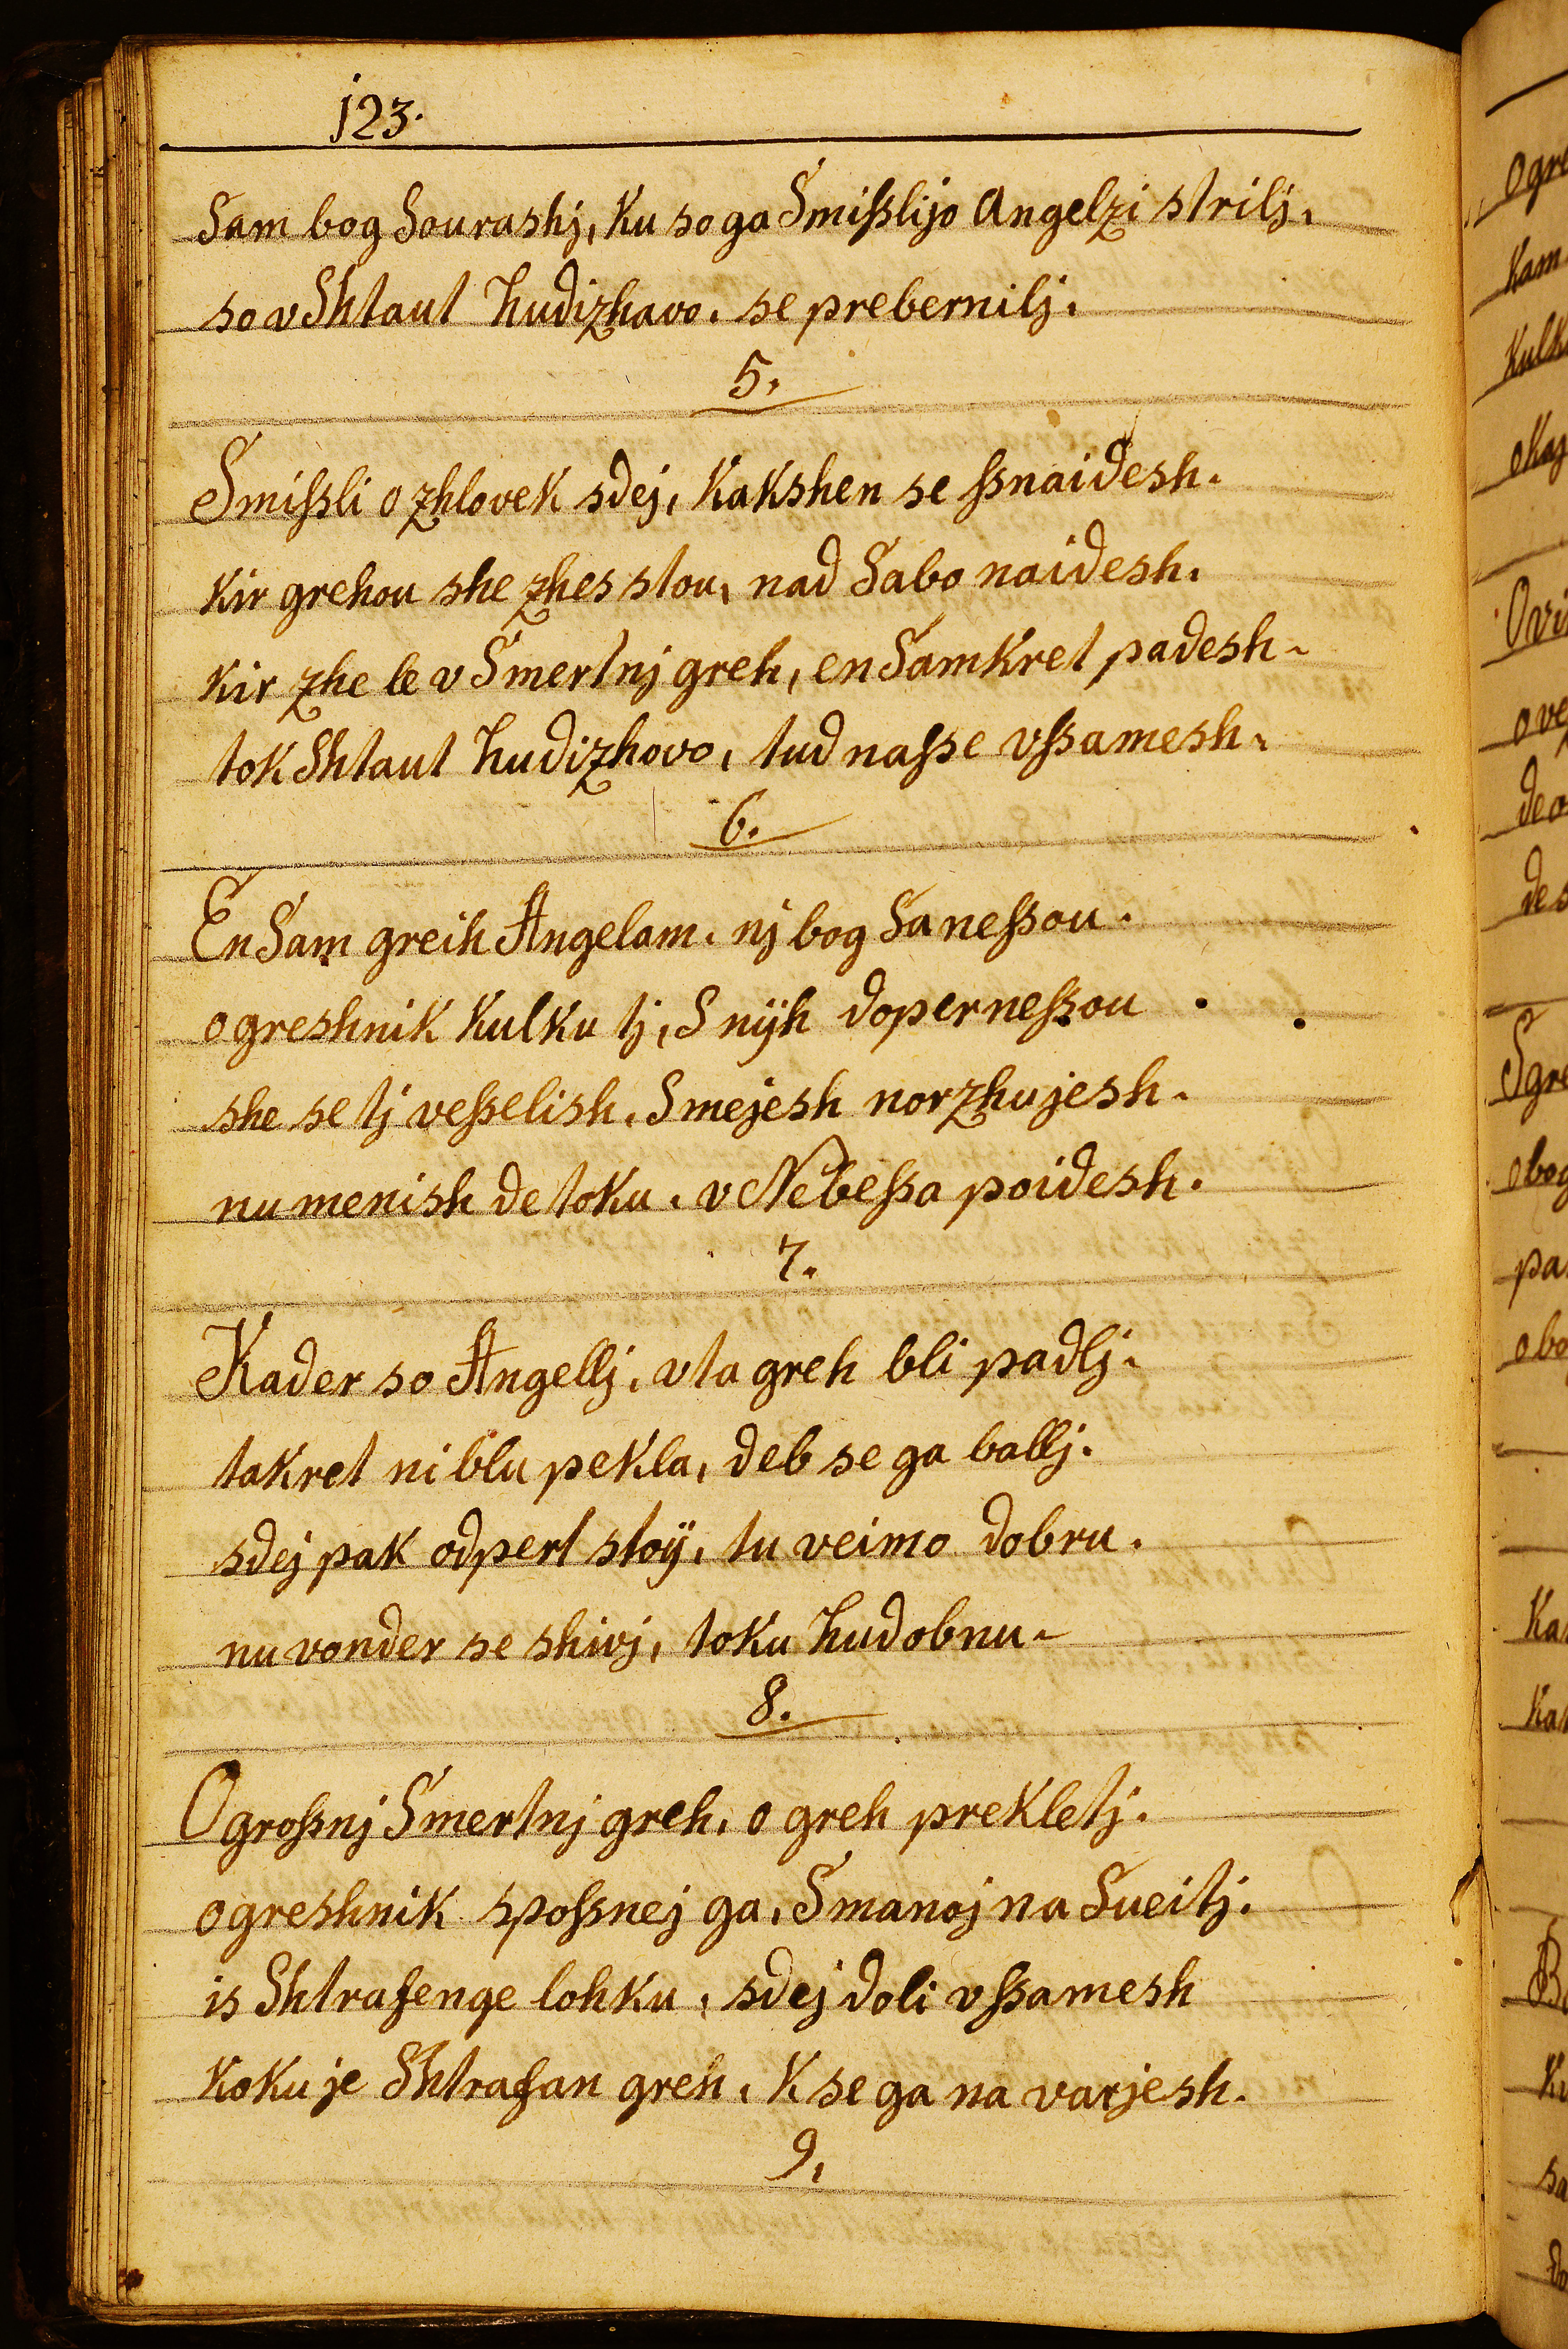 j23.
Sam bog Sourashj, Ku so ga Smißlijo Angelzi strilj.
so v Shtaut hudizhavo. se prebernilj.
5.
Smißli o zhlovek sdej, Kakshen se ßnaidesh.
Kir grehou she zhes stou, nad Sabo naidesh.
Kir zhe le v Smertnj greh, en Samkret padesh.
tok Shtaut hudizhovo, tud naße vßamesh.
6.
En Sam greih Angelam. nj bog Sa neßou.
o greshnik Kulku tj, S nÿh doperneßou.
she se tj veßelish. Smejesh norzhujesh.
nu menish de toku. v Nebeßa poidesh.
7.
Kader so Angellj. v ta greh bli padlj.
takret ni blu pekla, deb se ga ballj.
sdej pak odpert stoÿ, tu veimo dobru.
nu vonder se shivj, toku hudobnu.
8.
O großnj Smertnj greh. o greh prekletj.
o greshnik spoßnej ga, S manoj na Sueitj.
is Shtrafenge lohku, sdej doli vßamesh
Koku je Shtrafan greh, K se ga na varjesh.
9.
Ogre
Kam
Kulk
okaj
Ovi
o ve
de o
de s
Sgre
obog
pa
obo
Ka
Ka